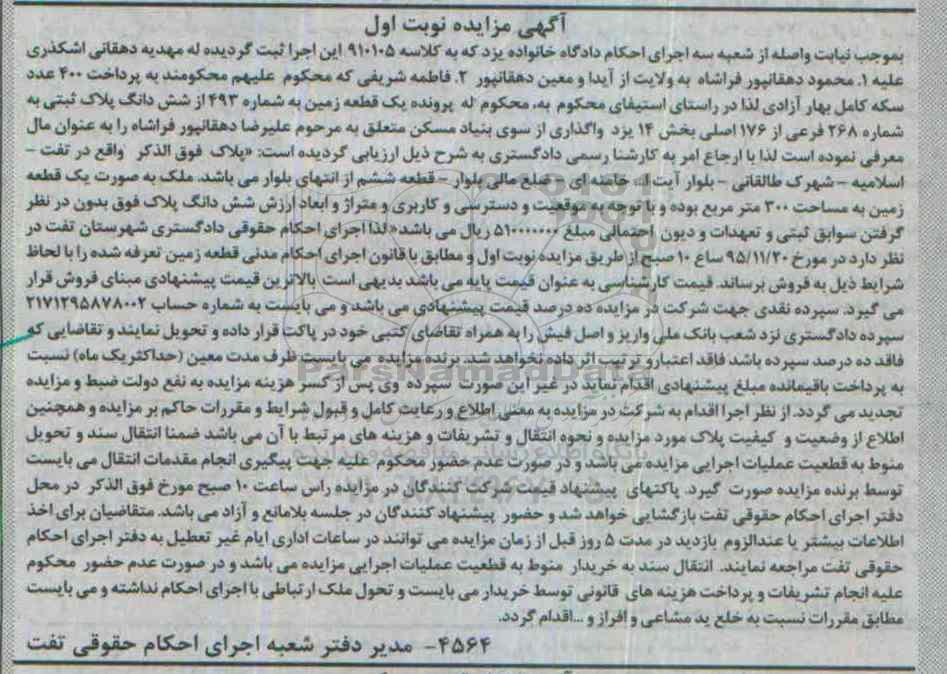 آگهی مزایده نوبت اول
بموجب نیابت واصله از شعبه سه اجرای احکام دادگاه خانواده یزد که به کلاسه ۹۱۰۱۰۵ این اجرا ثبت گردیده له مهدیه دهقانی اشکذری
علیه ۱. محمود دهقانپور فراشاه به ولایت از آیدا و معین دهقانپور ۲. فاطمه شریفی که محکوم علیهم محکومند به پرداخت ۴۰۰ عدد
سکه کامل بهار آزادی لذا در راستای استیفای محکوم به، محکوم له پرونده یک قطعه زمین به شماره ۴۹۳ از شش دانگ پلاک ثبتی به
شماره ۲۶۸ فرعی از ۱۷۶ اصلی بخش ۱۴ یزد واگذاری از سوی بنیاد مسکن متعلق به مرحوم علیرضا دهقانپور فراشاه را به عنوان مال
معرفی نموده است لذا با ارجاع امر به کارشنا رسمی دادگستری به شرح ذیل ارزیابی گردیده است: «پلاک فوق الذکر واقع در تفت -
اسلامیه - شهرک طالقانی - بلوار آیت اله خامنه ای - ضلع مالی بلوار - قطعه ششم از انتهای بلوار می باشد. ملک به صورت یک قطعه
زمین به مساحت ۳۰۰ متر مربع بوده و با توجه به موقعیت و دسترسی و کاربری و متراژ و ابعاد ارزش شش دانگ پلاک فوق بدون در نظر
گرفتن سوابق ثبتی و تعهدات و دیون احتمالی مبلغ ۵۱۰۰۰۰۰۰۰ ریال می باشد» لذا اجرای احکام حقوقی دادگستری شهرستان تفت در
نظر دارد در مورخ ۹۵/۱۱/۲۰ ساع ۱۰ صبح از طریق مزایده نوبت اول و مطابق با قانون اجرای احکام مدنی قطعه زمین تعرفه شده را با لحاظ
شرایط ذیل به فروش برساند. قیمت کارشناسی به عنوان قیمت پایه می باشد بدیهی است بالاترین قیمت پیشنهادی مبنای فروش قرار
می گیرد. سپرده نقدی جهت شرکت در مزایده ده درصد قیمت پیشنهادی می باشد و می بایست به شماره حساب ۲۱۷۱۲۹۵۸۷۸۰۰۲
سپرده دادگستری نزد شعب بانک ملی واریز و اصل فیش را به همراه تقاضای کتبی خود در پاکت قرار داده و تحویل نمایند و تقاضایی که
فاقد ده درصد سپرده باشد فاقد اعتبار و ترتیب اثر داده نخواهد شد. برنده مزایده می بایست ظرف مدت معین (حداکثر یک ماه) نسبت
به پرداخت باقیمانده مبلغ پیشنهادی اقدام نماید در غیر این صورت سپرده وی پس از کسر هزینه مزایده به نفع دولت ضبط و مزایده
تجدید می گردد. از نظر اجرا اقدام به شرکت در مزایده به معنی اطلاع و رعایت کامل و قبول شرایط و مقررات حاکم بر مزایده و همچنین
اطلاع از وضعیت و کیفیت پلاک مورد مزایده و نحوه انتقال و تشریفات و هزینه های مرتبط با آن می باشد ضمنا انتقال سند و تحویل
منوط به قطعیت عملیات اجرایی مزایده می باشد و در صورت عدم حضور محکوم علیه جهت پیگیری انجام مقدمات انتقال می بایست
توسط برنده مزایده صورت گیرد. پاکتهای پیشنهاد قیمت شرکت کنندگان در مزایده راس ساعت ۱۰ صبح مورخ فوق الذکر در محل
دفتر اجرای احکام حقوقی تفت بازگشایی خواهد شد و حضور پیشنهاد کنندگان در جلسه بلامانع و آزاد می باشد. متقاضیان برای اخذ
اطلاعات بیشتر یا عندالزوم بازدید در مدت ۵ روز قبل از زمان مزایده می توانند در ساعات اداری ایام غیر تعطیل به دفتر اجرای احکام
حقوقی تفت مراجعه نمایند. انتقال سند به خریدار منوط به قطعیت عملیات اجرایی مزایده می باشد و در صورت عدم حضور محکوم
علیه انجام تشریفات و پرداخت هزینه های قانونی توسط خریدار می بایست و تحول ملک ارتباطی با اجرای احکام نداشته و می بایست
مطابق مقررات نسبت به خلع ید مشاعی و افراز و ...اقدام گردد.
۴۵۶۴- مدیر دفتر شعبه اجرای احکام حقوقی تفت
ParsNamadData